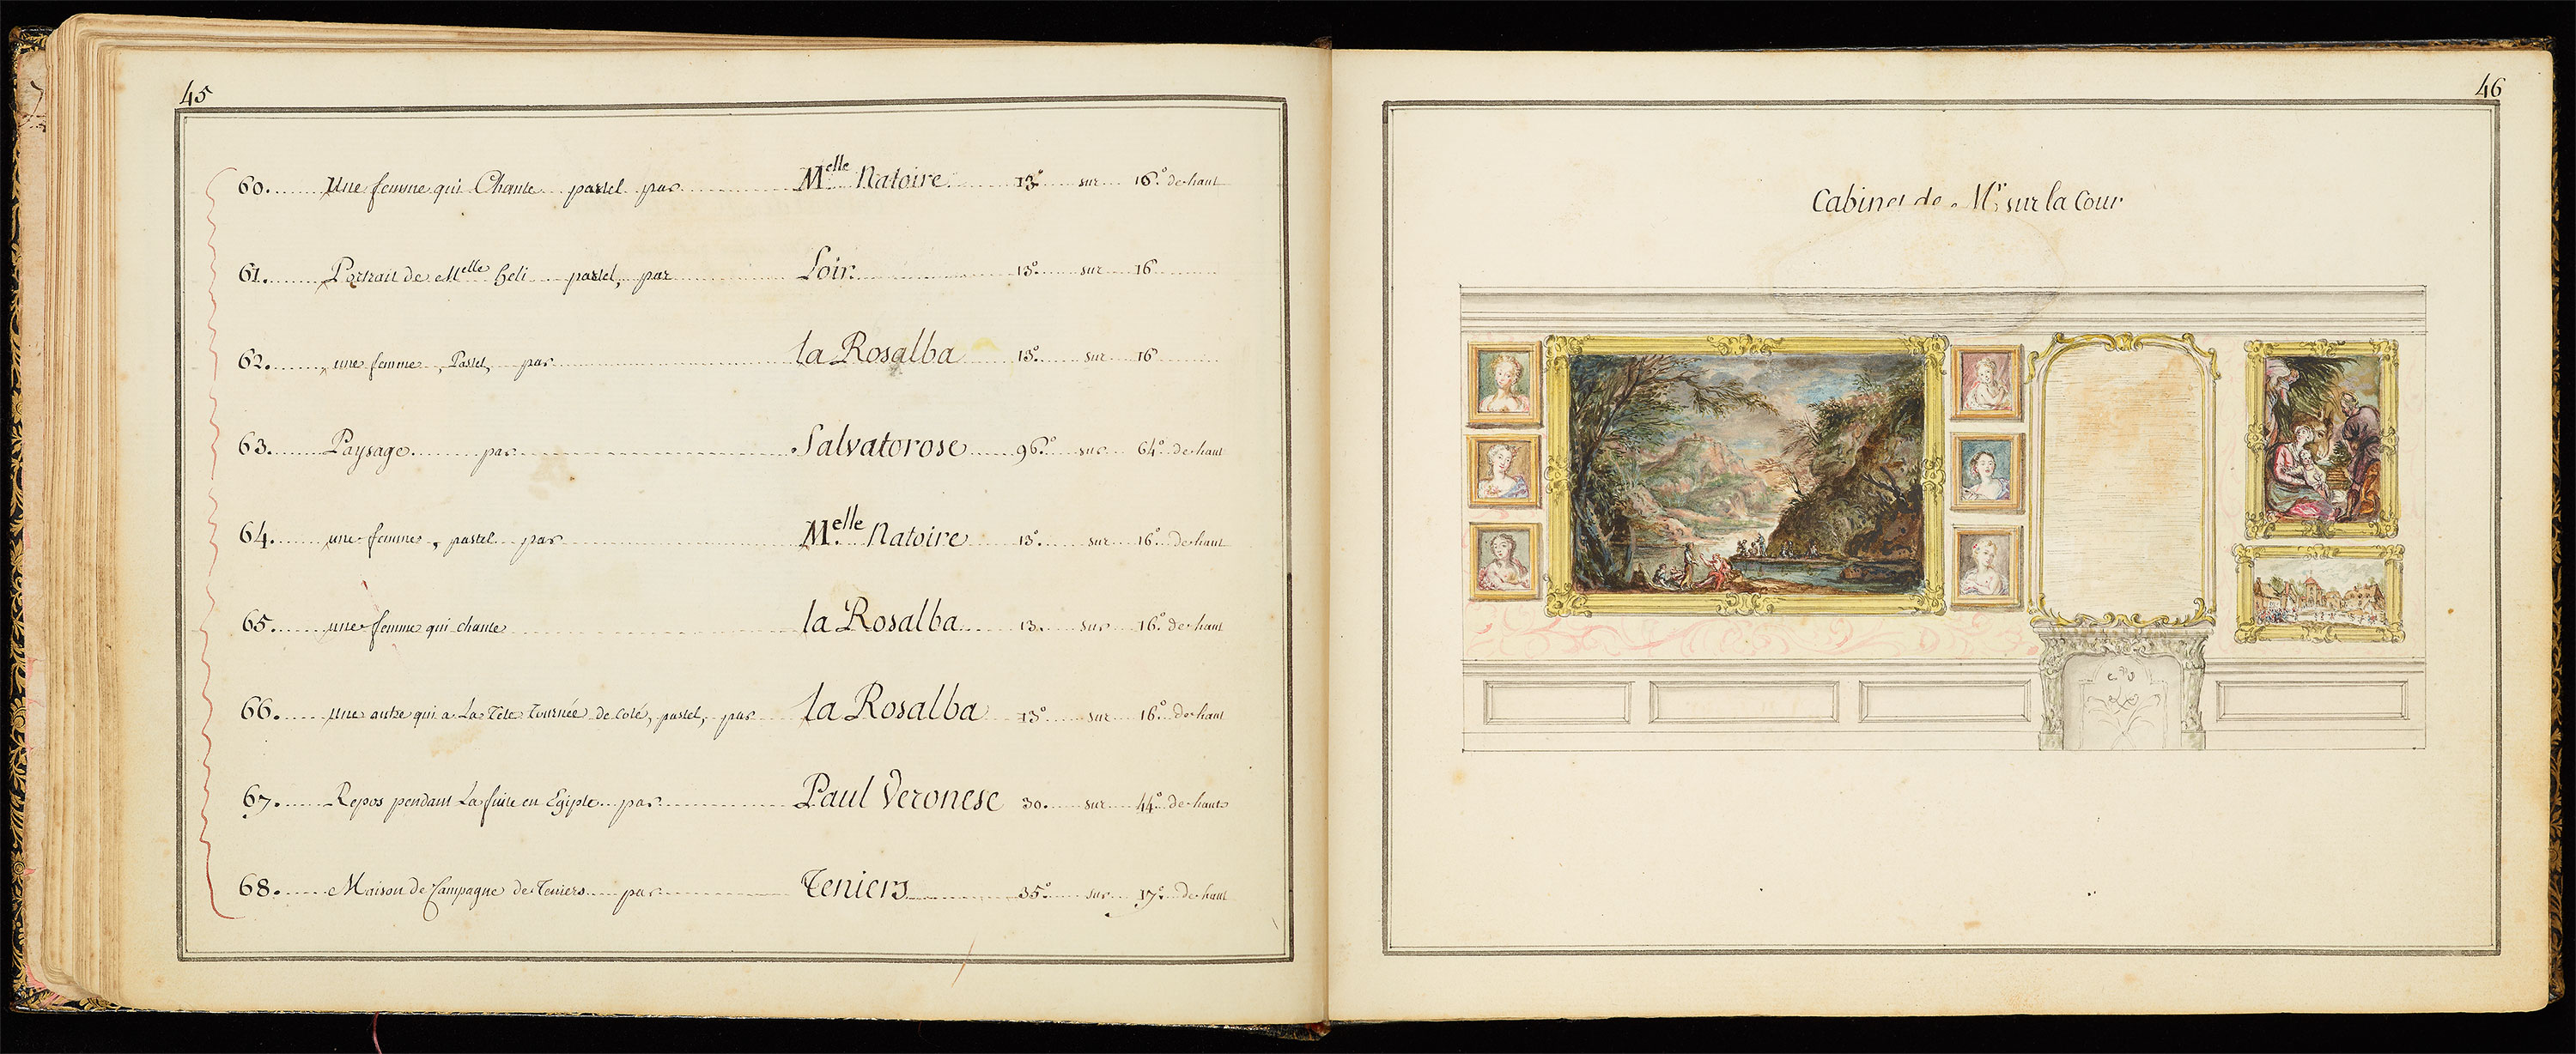 45
60. Une femme qui Chante pastel par Melle Natoire 13° sur 16° de haut
61. Portrait de Melle heli pastel, par Loir 13° sur 16
62. une femme, Pastel, par la Rosalba 13° sur 16
63. Paysage par Salvatorose 96° sur 64° de haut
64. une femme, pastel par Melle Natoire 13° sur 16° de haut
65. une femme qui chante la Rosalba 13. sur 16° de haut
66. une autre qui a La Tête Tournée de Coté, pastel, par la Rosalba 13° sur 16° de haut
67. Repos pendant La fuite en Egipte par Paul Veronese 30. sur 44° de haut
68. Maison de Campagne de Teniers par Teniers 35° sur 17° de haut
46
Cabinet de Mr sur la Cour